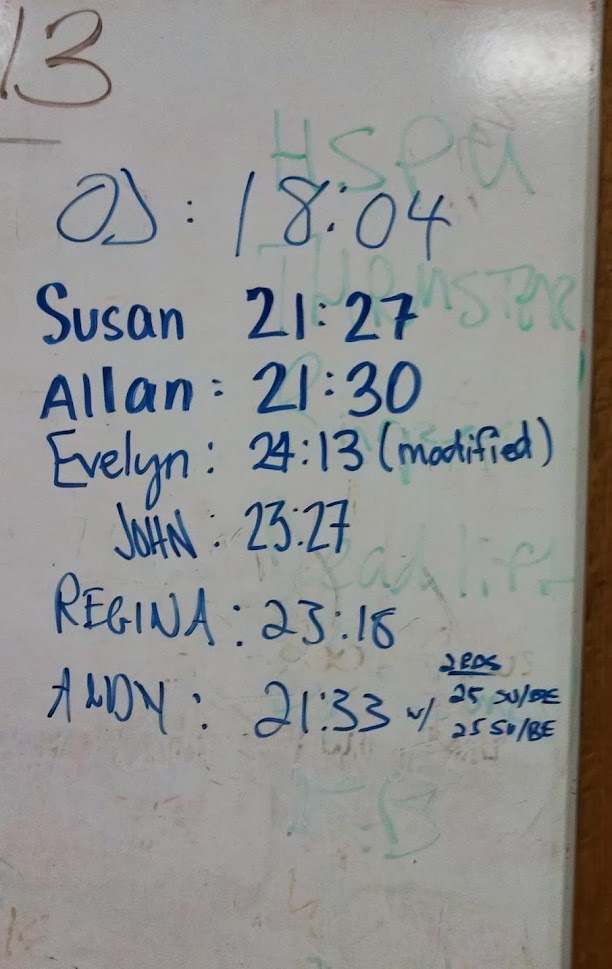 13
OJ: 18:04
Susan 21:27
Allan: 21:30
Evelyn: 24:13 (modified)
JOHN: 23:27
REGINA: 23:18
ANDY: 21:33 w/ 2 RDS
25 SU/BE
25 SU/BE
HSPU
THRUSTER